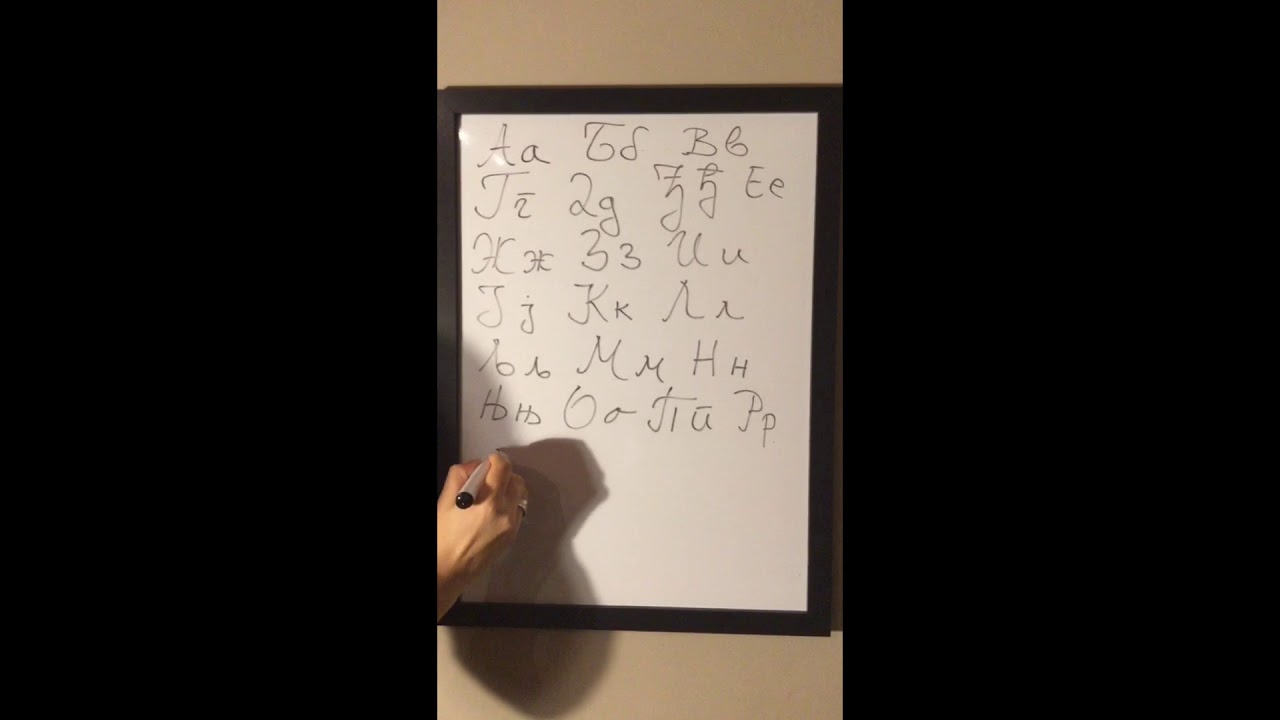 Аа Бб Вв
Гг Дд Ђђ Ее
Жж Зз Ии
Јј Кк Лл
Љљ Мм Нн
Њњ Оо Пп Рр